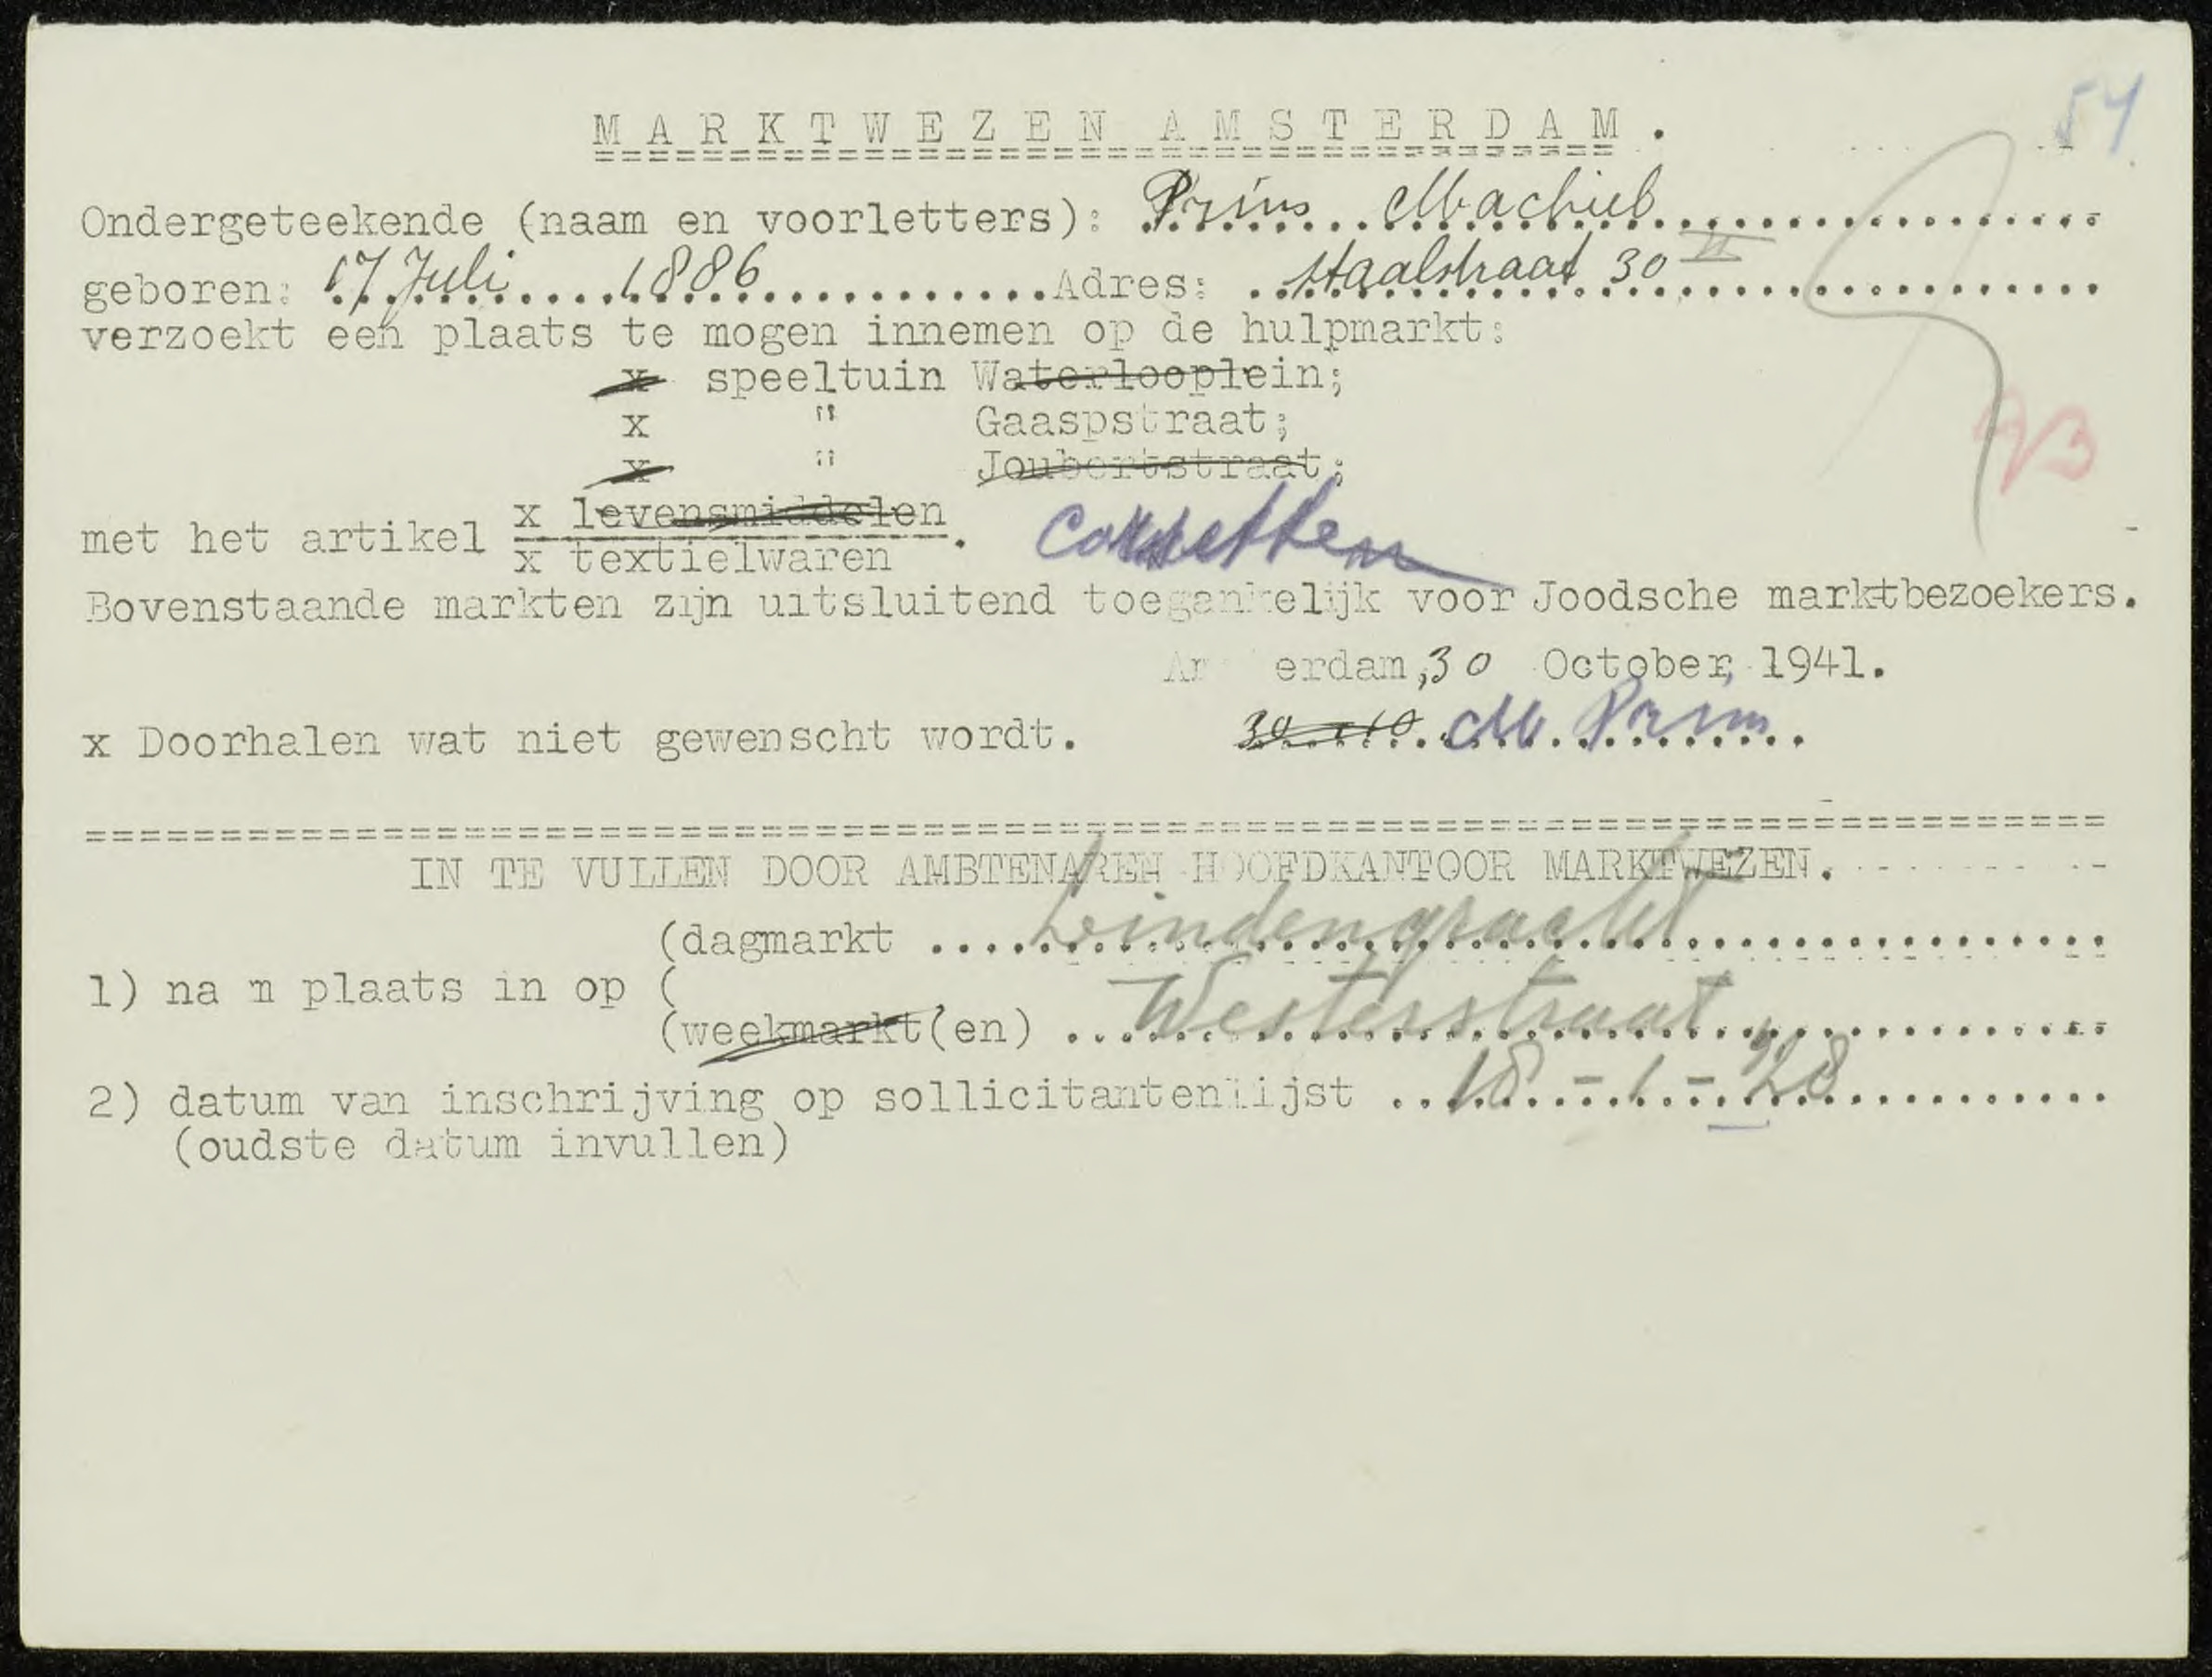 54
MARKTWEZEN AMSTERDAM.
Ondergeteekende (naam en voorletters): Prins Machiel
geboren: 17 Juli 1886 Adres: Staalstraat 30 II
verzoekt een plaats te mogen innemen op de hulpmarkt:
x speeltuin Waterlooplein;
x " Gaaspstraat;
x " Joubertstraat;
met het artikel x levensmiddelen
x textielwaren. Corsetten
Bovenstaande markten zijn uitsluitend toegankelijk voor Joodsche marktbezoekers.
Amsterdam, 30 October, 1941.
x Doorhalen wat niet gewenscht wordt. 30 10 M. Prins
IN TE VULLEN DOOR AMBTENAREN HOOFDKANTOOR MARKTWEZEN.
(dagmarkt Lindengracht
1) na m plaats in op (
(weekmarkt(en) Westerstraat
2) datum van inschrijving op sollicitantenlijst 18-1-'28
(oudste datum invullen)